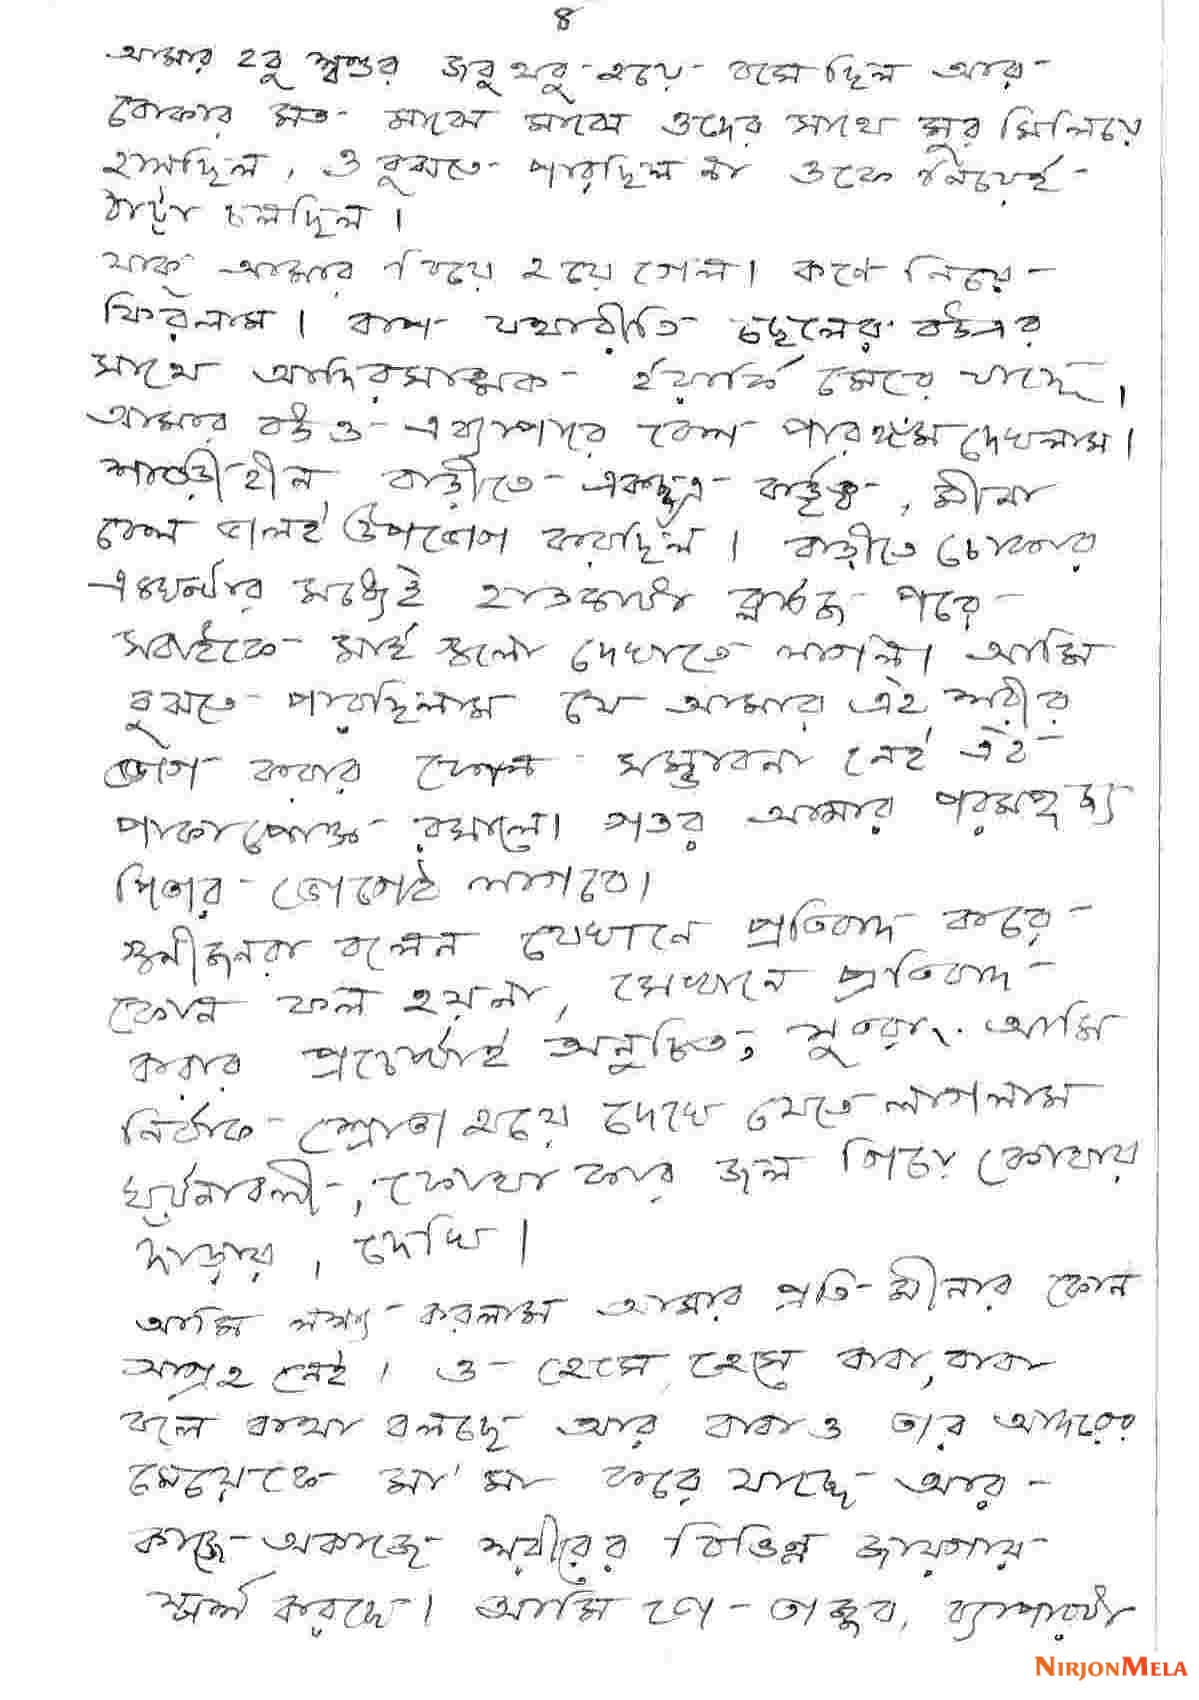 ৪
আমার হবু শ্বশুর জবুথবু হয়ে বসেছিল আর
বোকার মত মাঝে মাঝে ওদের সাথে সুর মিলিয়ে
হাসছিল, ও বুঝতে পারছিল না ওকে নিয়েই
ঠাট্টা চলছিল।
যাক আমার বিয়ে হয়ে গেল। কণে নিয়ে
ফিরলাম। বাপ যথারীতি ছেলের বউএর
সাথে আদিরসাত্মক ইয়ার্কি মেরে যাচ্ছে।
আমার বউও এব্যাপারে বেশ পারঙ্গম দেখলাম।
শাশুড়ীহীন বাড়ীতে একচ্ছত্র কর্তৃত্ব, মীনা
বেশ ভালই উপভোগ করছিল। বাড়ীতে ঢোকার
একঘন্টার মধ্যেই হাতকাটা ব্লাউজ পরে
সবাইকে মাই গুলো দেখাতে লাগল। আমি
বুঝতে পারছিলাম যে আমার এই শরীর
ভোগ করার কোন সম্ভাবনা নেই এই
পাকাপোক্ত রসালো গতর আমার পরমপূজ্য
পিতার ভোগেই লাগবে।
গুনীজনরা বলেন যেখানে প্রতিবাদ করে
কোন ফল হয়না, সেখানে প্রতিবাদ
করার প্রচেষ্টাই অনুচিত, সুতরাং আমি
নির্বাক শ্রোতা হয়ে দেখে যেতে লাগলাম
ঘটনাবলী, কোথাকার জল গিয়ে কোথায়
দাঁড়ায়, দেখি।
আমি লক্ষ্য করলাম আমার প্রতি মীনার কোন
আগ্রহ নেই। ও হেসে হেসে বাবা, বাবা
বলে কথা বলছে আর বাবাও তার আদরের
মেয়েকে মা মা করে যাচ্ছে আর
কাজে অকাজে শরীরের বিভিন্ন জায়গায়
স্পর্শ করছে। আমি তো তাজ্জব, ব্যাপারটা
NIRJONMELA